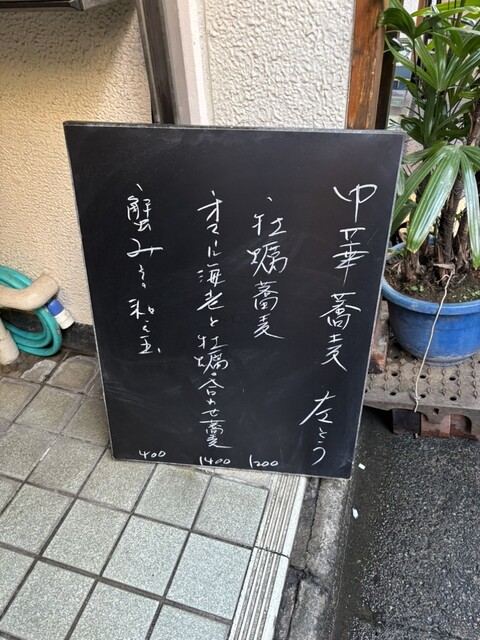 中華蕎麦 左とう
、牡蠣蕎麦 1200
、オマール海老と牡蠣の合わせ蕎麦 1400
、蟹みその和え玉 400